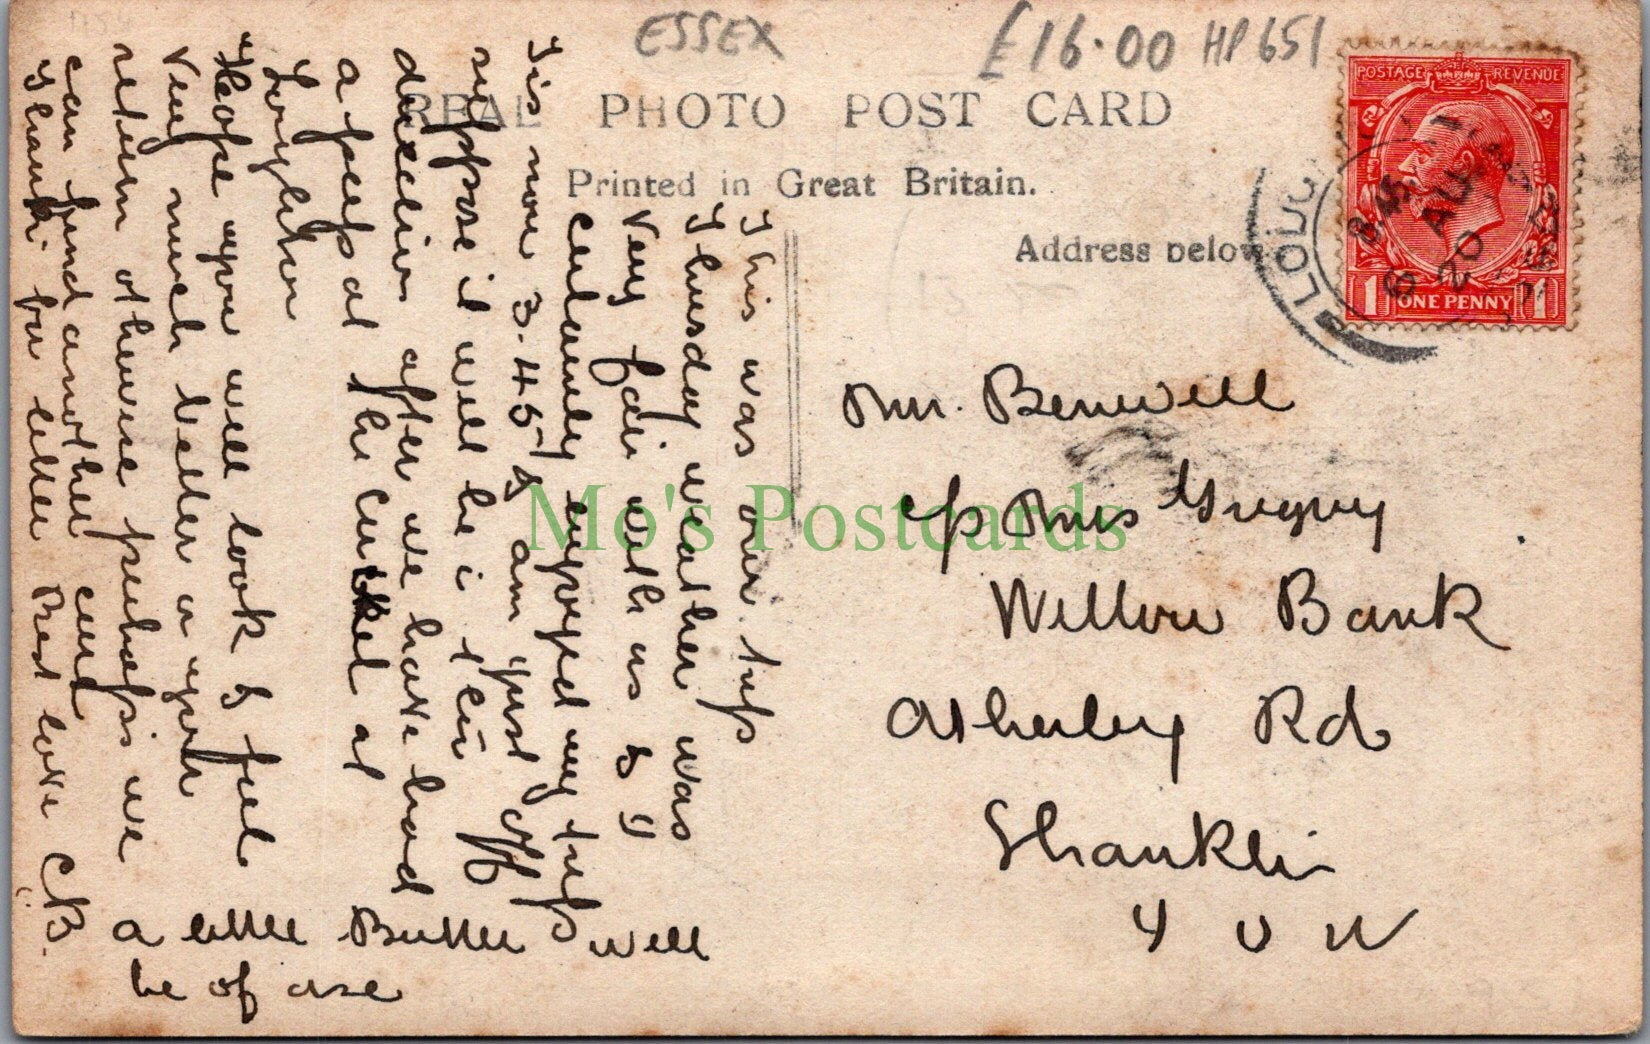 ESSEX
£16.00 HP 651
REAL PHOTO POST CARD
Printed in Great Britain.
Address below
POSTAGE REVENUE
1 ONE PENNY 1
8.45
AU
20
Mr. Benwell
c/o Mrs Gregory
Willow Bank
Atherley Rd
Shanklin
I O W
This was our trip
Thursday weather was
Very fair with us & I
certainly enjoyed my trip
I is now 3.45 & am just off
suppose it will be i
direction after we have had
a peep at the at
Hope you will look & feel
Very much better on your
return otherwise perhaps we
can find another cure
Thank for letter Best love CB.
a little Butter will
be of use
Mo's Postcards